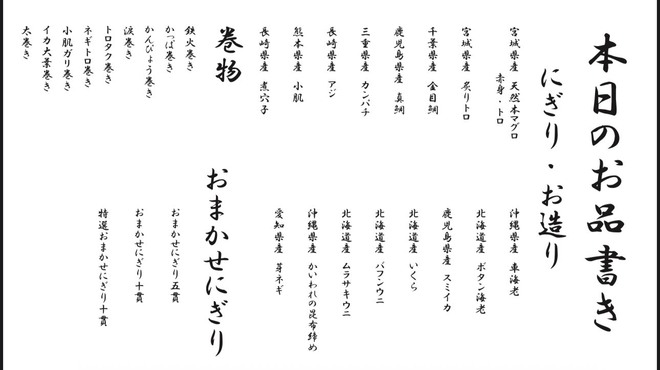 本日のお品書き
にぎり・お造り
宮城県産 天然本マグロ
赤身・トロ
宮城県産 炙りトロ
千葉県産 金目鯛
鹿児島県産 真鯛
三重県産 カンパチ
長崎県産 アジ
熊本県産 小肌
長崎県産 煮穴子
沖縄県産 車海老
北海道産 ボタン海老
鹿児島県産 スミイカ
北海道産 いくら
北海道産 バフンウニ
北海道産 ムラサキウニ
沖縄県産 かいわれの昆布締め
愛知県産 芽ネギ
巻物
鉄火巻き
かっぱ巻き
かんぴょう巻き
涙巻き
トロタク巻き
ネギトロ巻き
小肌ガリ巻き
イカ大葉巻き
太巻き
おまかせにぎり
おまかせにぎり五貫
おまかせにぎり十貫
特選おまかせにぎり十貫